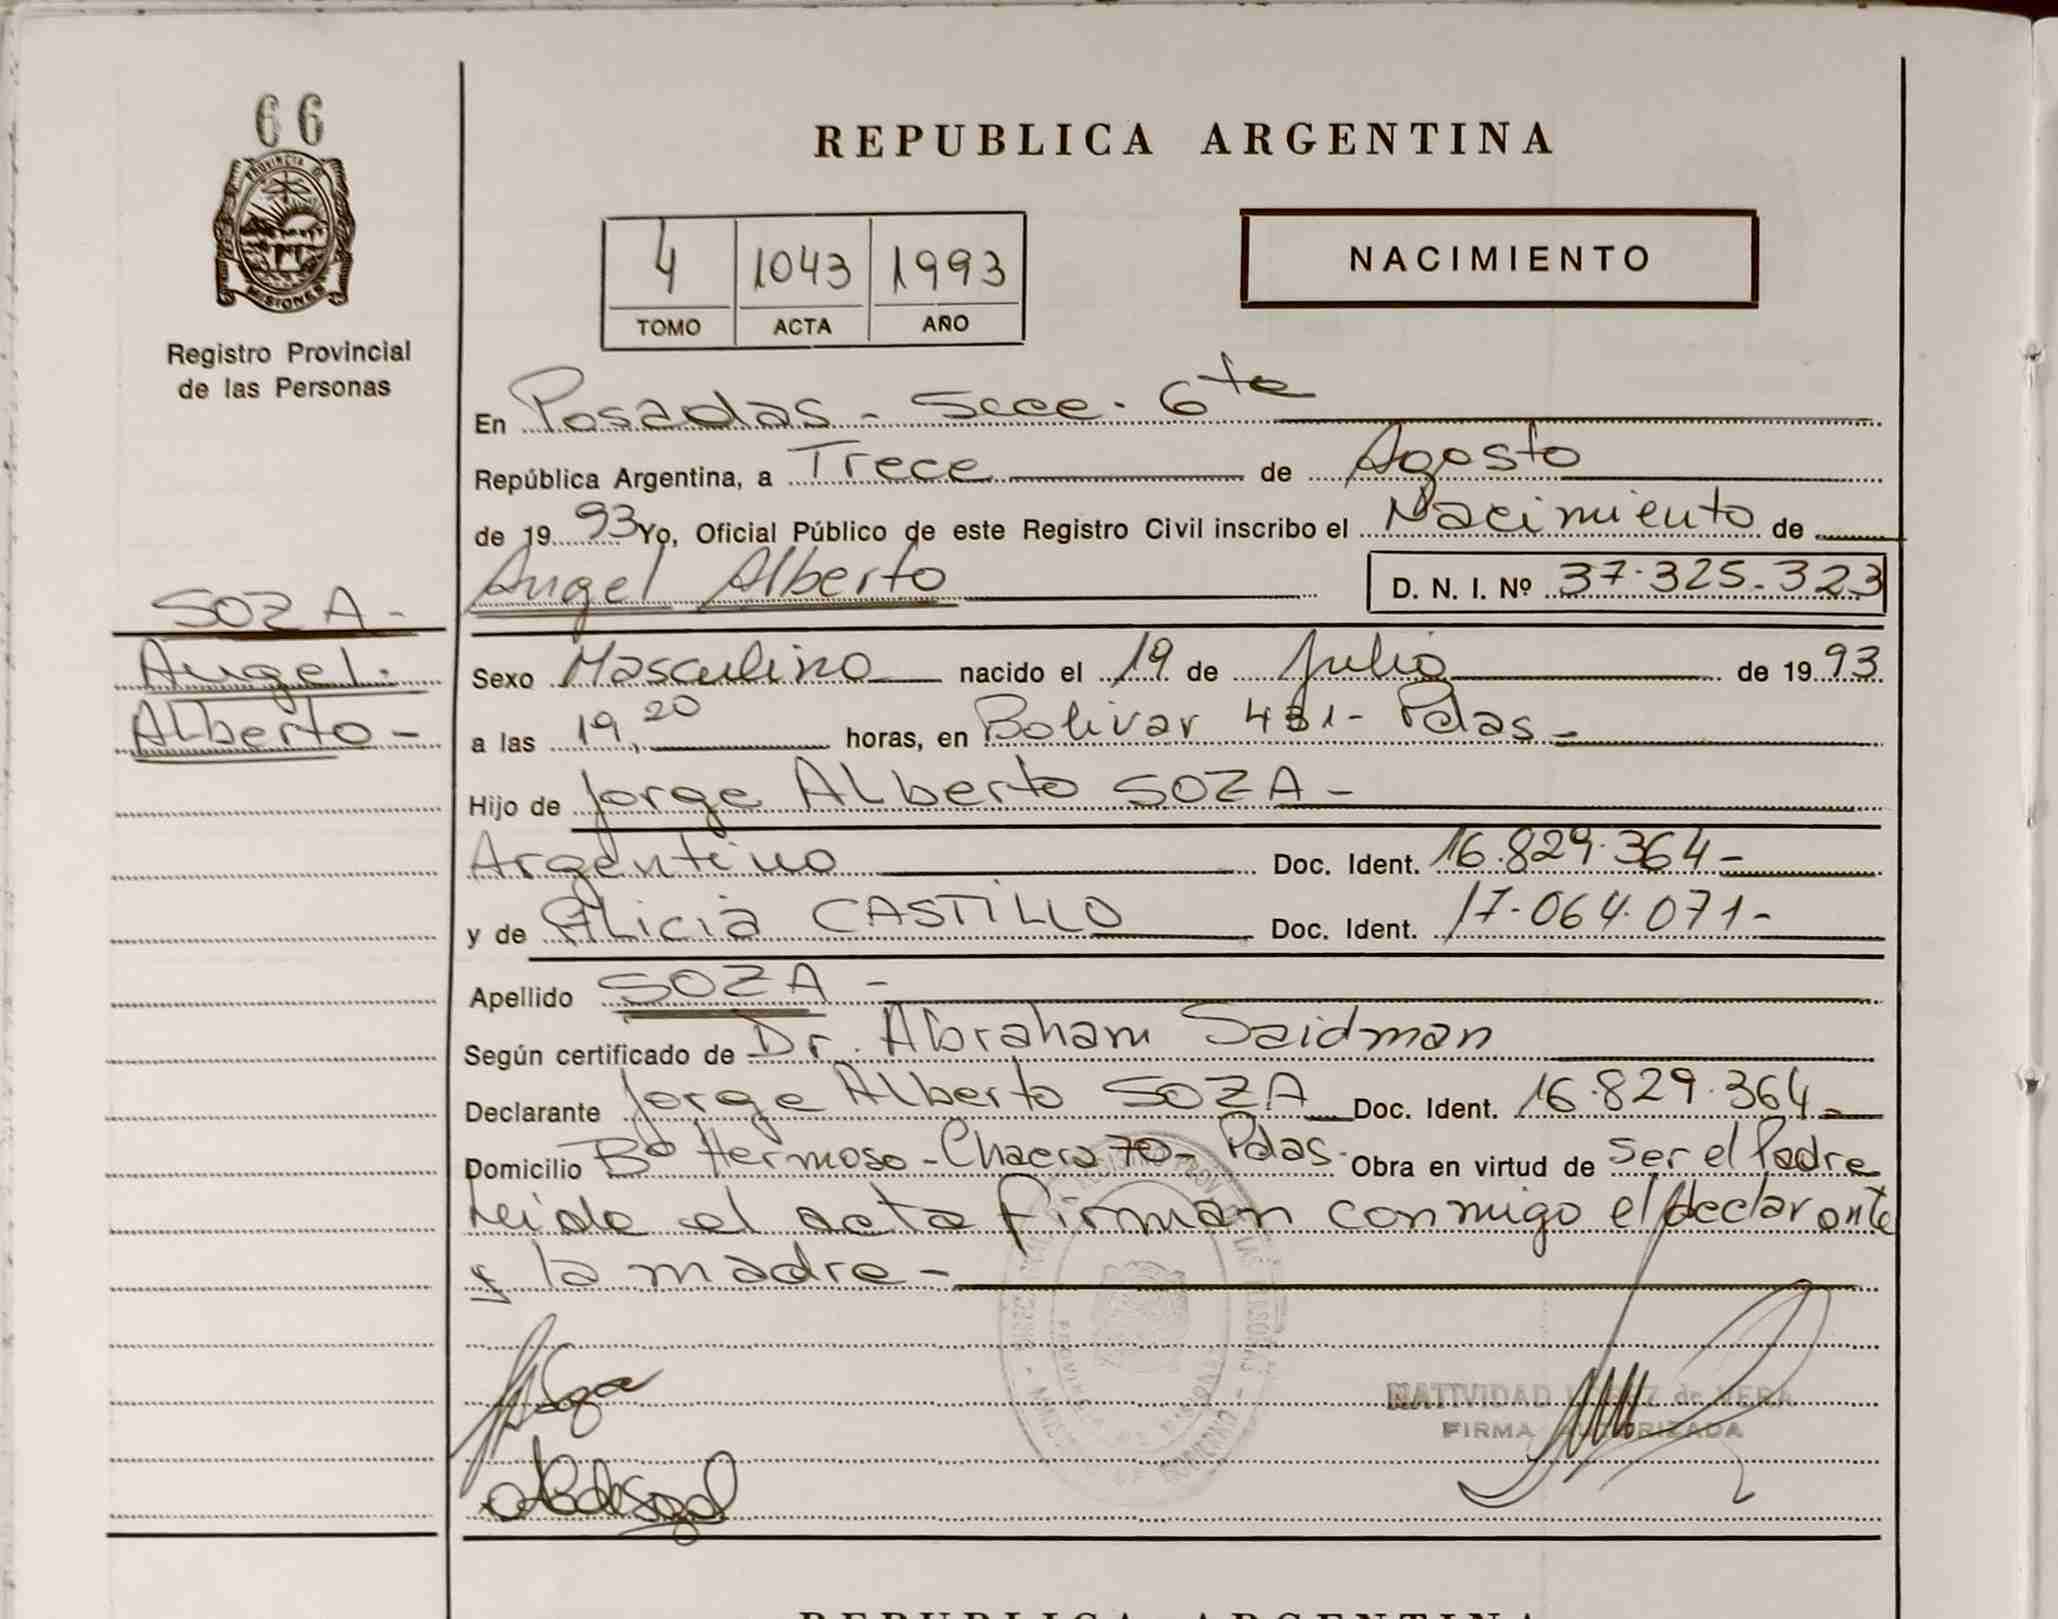 66
PROVINCIA DE
MISIONES
Registro Provincial
de las Personas
SOZA -
Angel.
Alberto -
REPUBLICA ARGENTINA
4 1043 1993
TOMO ACTA AÑO
NACIMIENTO
En Posadas - Secc. 6ta
República Argentina, a Trece de Agosto
de 1993 Yo, Oficial Público de este Registro Civil inscribo el Nacimiento de
Angel Alberto D. N. I. Nº 37.325.323
Sexo Masculino nacido el 19 de Julio de 1993
a las 19,20 horas, en Bolivar 481 - Pdas -
Hijo de Jorge Alberto SOZA -
Argentino Doc. Ident. 16.829.364 -
y de Alicia CASTILLO Doc. Ident. 17.064.071 -
Apellido SOZA -
Según certificado de Dr. Abraham Saidman
Declarante Jorge Alberto SOZA Doc. Ident. 16.829.364 -
Domicilio Bº Hermoso - Chacra 70 - Pdas. Obra en virtud de ser el Padre
Leida el acta firman conmigo el declarante
y la madre -
NATIVIDAD LOPEZ de VERA
FIRMA AUTORIZADA
REPUBLICA ARGENTINA